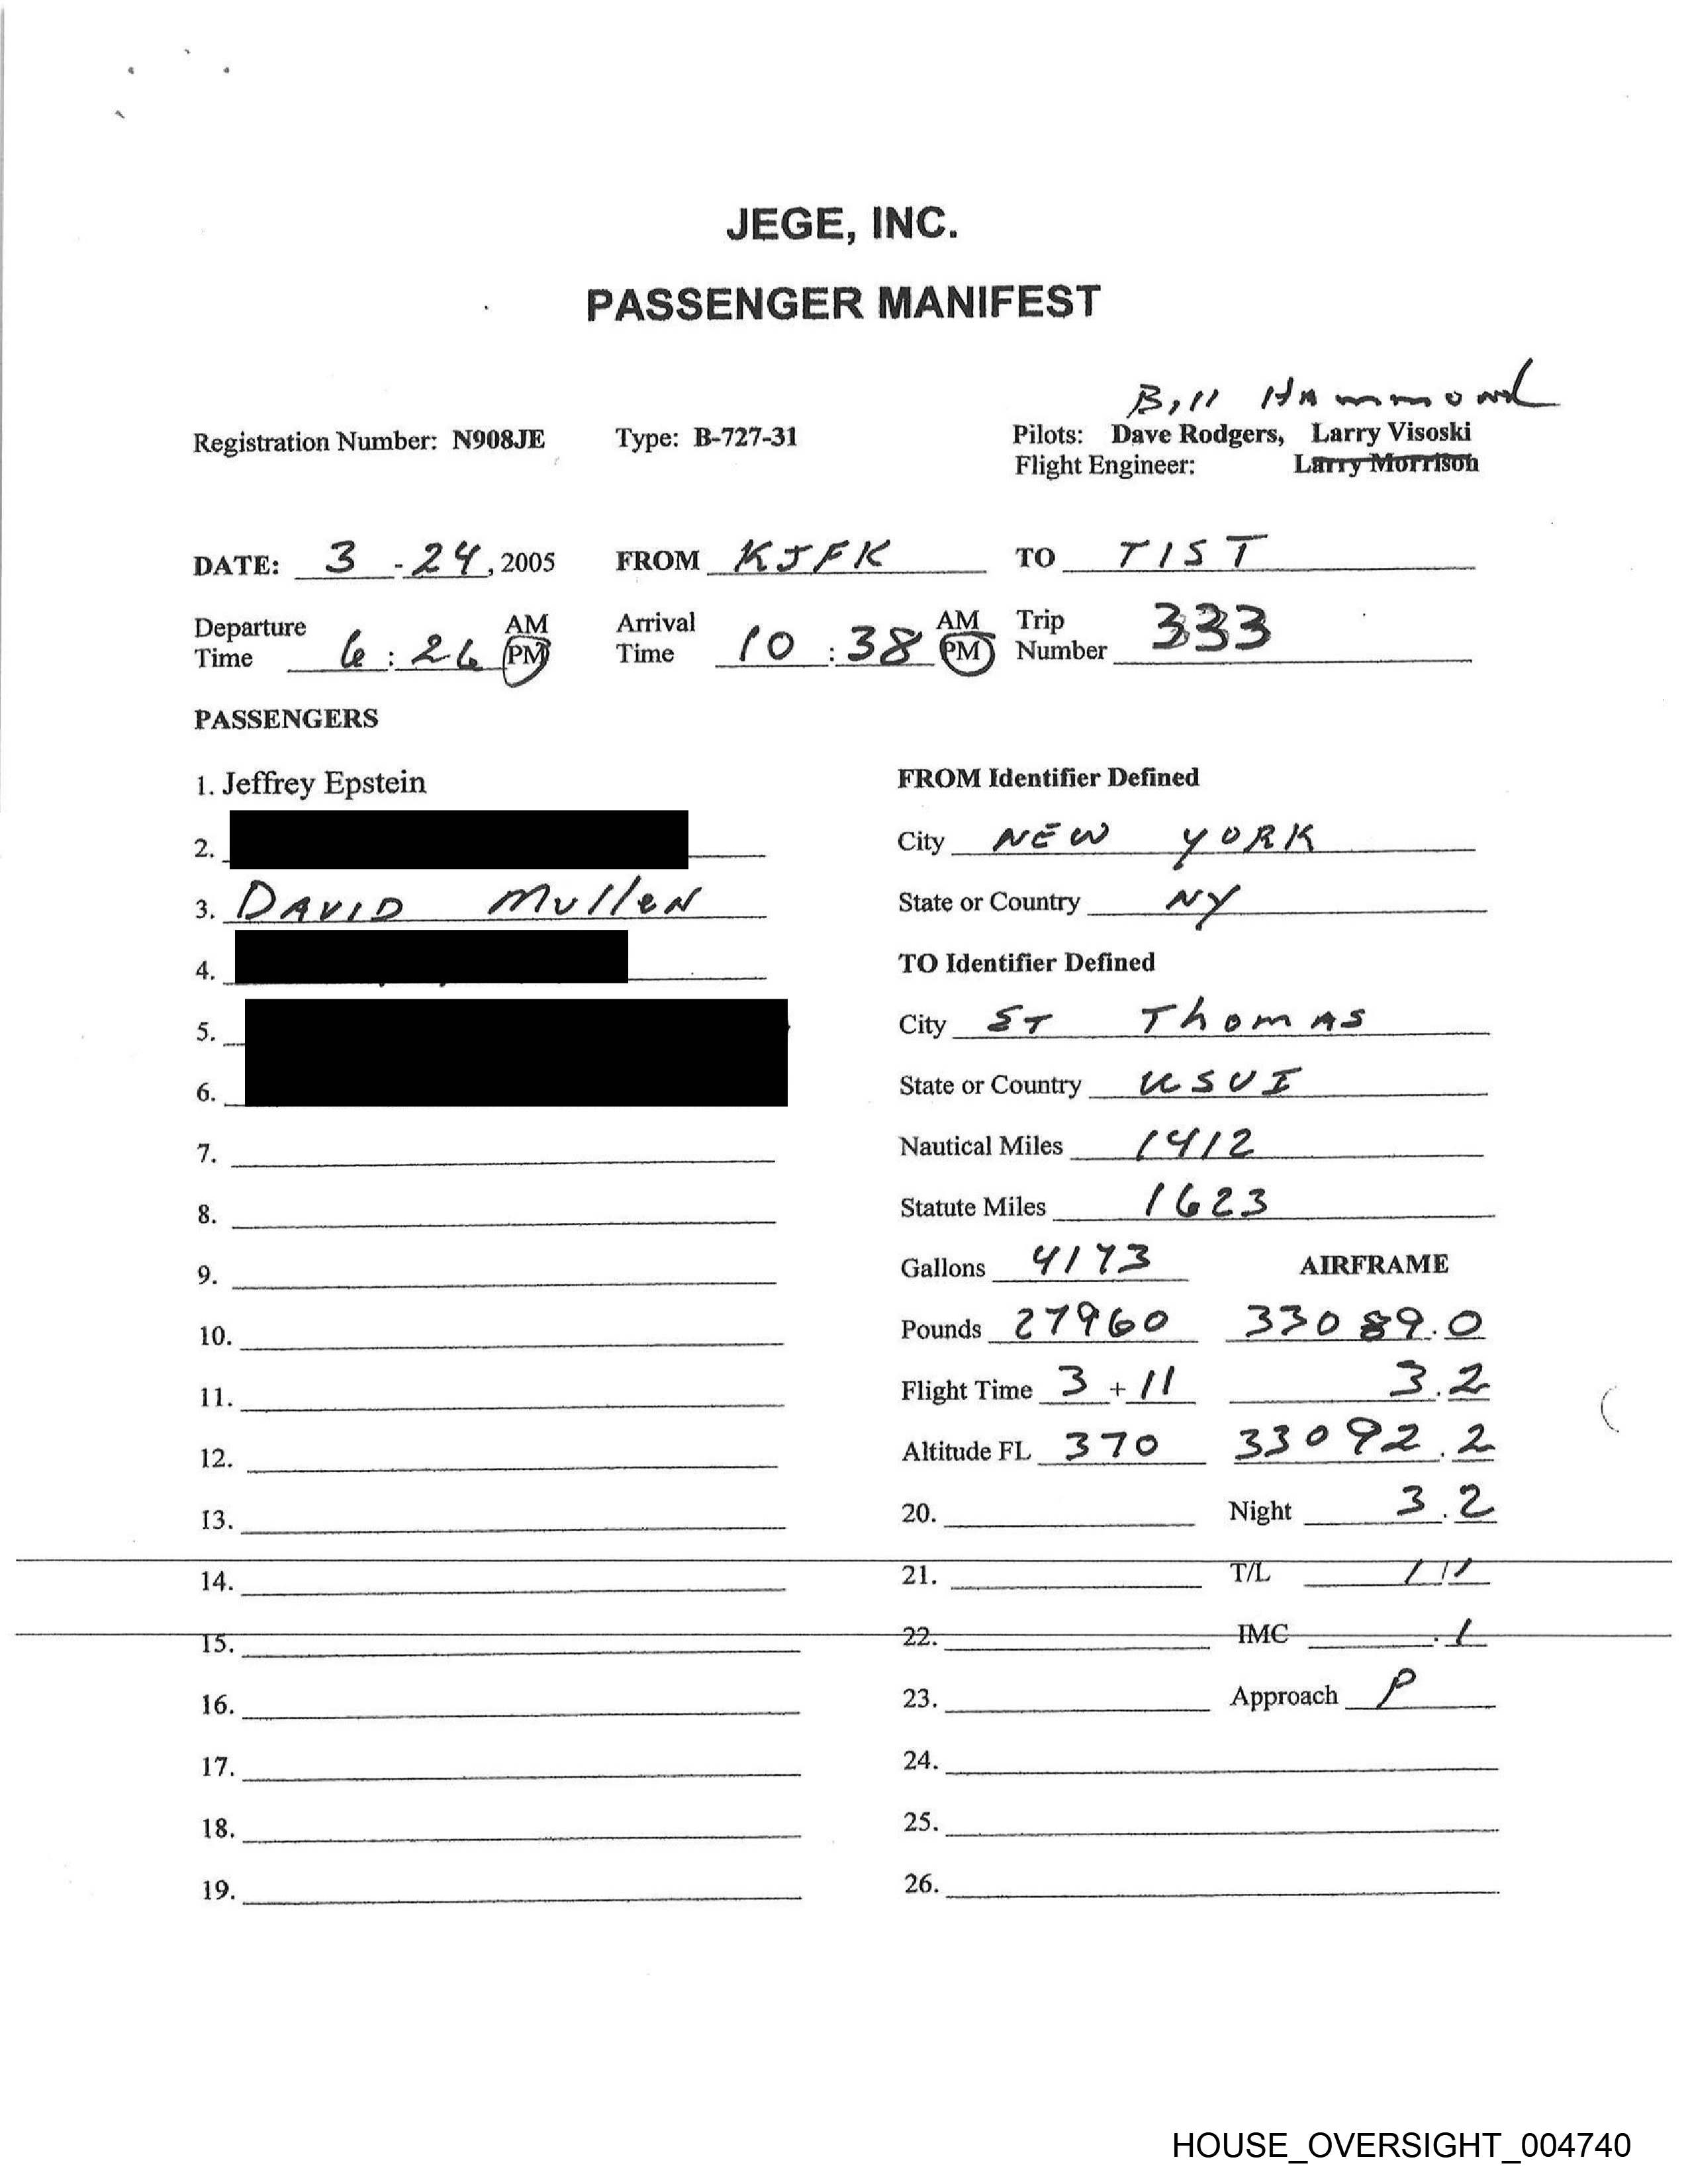 JEGE, INC.
PASSENGER MANIFEST
Bill Hammond
Registration Number: N908JE Type: B-727-31 Pilots: Dave Rodgers, Larry Visoski
Flight Engineer: Larry Morrison
DATE: 3 - 24, 2005 FROM KJFK TO TIST
Departure Time 6 : 26 AM PM Arrival Time 10 : 38 AM PM Trip Number 333
PASSENGERS
1. Jeffrey Epstein FROM Identifier Defined
2. City NEW YORK
3. DAVID Mullen State or Country NY
4. TO Identifier Defined
5. City ST Thomas
6. State or Country USVI
7. Nautical Miles 1412
8. Statute Miles 1623
9. Gallons 4173 AIRFRAME
10. Pounds 27960 33089.0
11. Flight Time 3 + 11 3.2
12. Altitude FL 370 33092.2
13. 20. Night 3.2
14. 21. T/L 1/1
15. 22. IMC .1
16. 23. Approach P
17. 24.
18. 25.
19. 26.
HOUSE_OVERSIGHT_004740